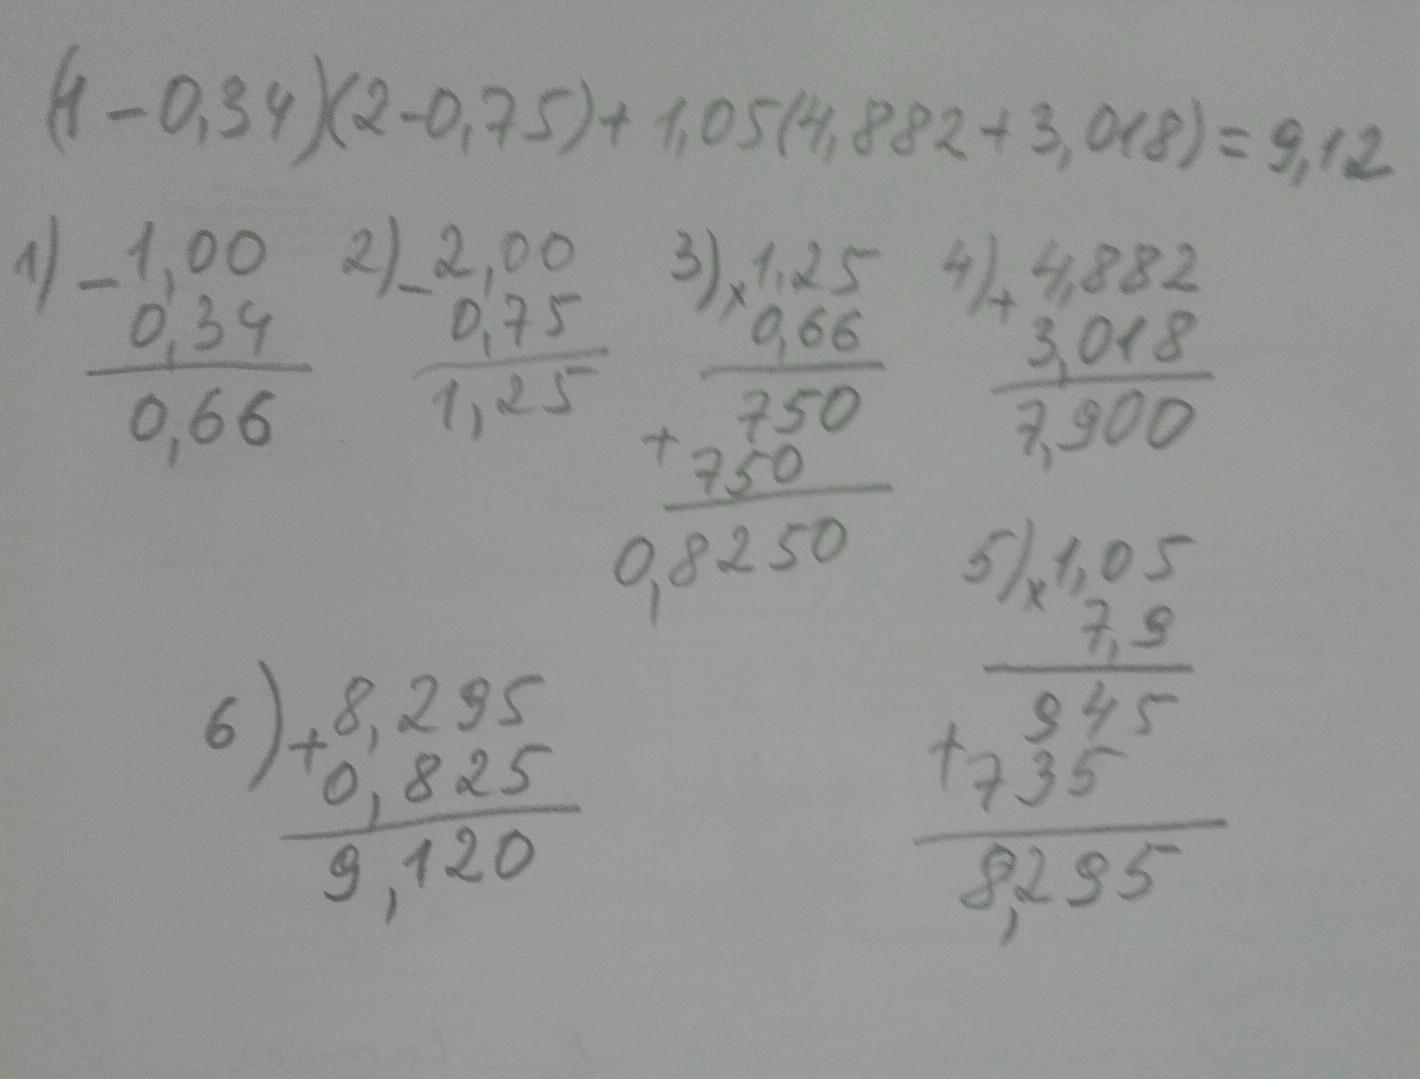 (1-0,34)(2-0,75)+1,05(4,882+3,018)=9,12
1) - 1,00
0,34
0,66
2) - 2,00
0,75
1,25
3) x 1,25
0,66
750
+ 750
0,8250
4) + 4,882
3,018
7,900
5) x 1,05
7,9
945
+ 735
8,295
6) + 8,295
0,825
9,120